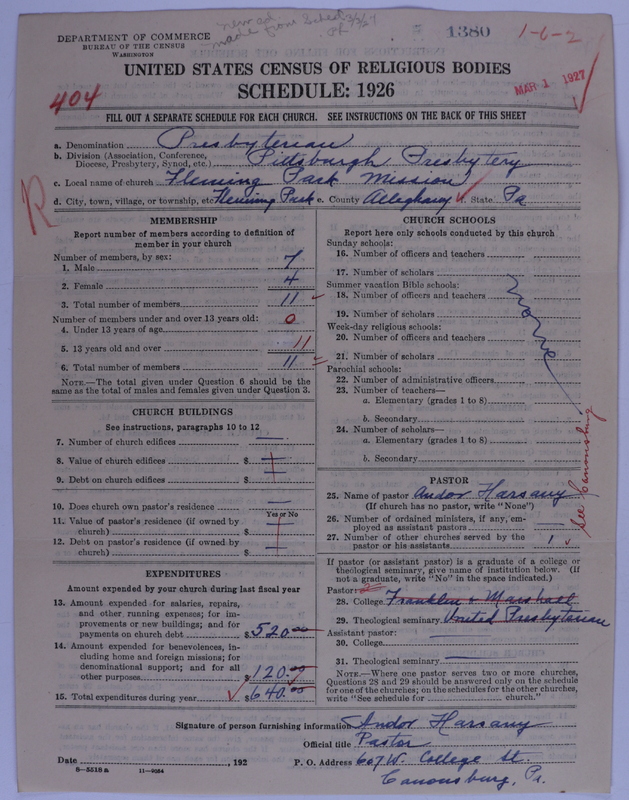 DEPARTMENT OF COMMERCE
BUREAU OF THE CENSUS
WASHINGTON
made from Sched
1380
1-6-2
UNITED STATES CENSUS OF RELIGIOUS BODIES
SCHEDULE: 1926
MAR 1 1927
404
FILL OUT A SEPARATE SCHEDULE FOR EACH CHURCH. SEE INSTRUCTIONS ON THE BACK OF THIS SHEET
a. Denomination Presbyterian
b. Division (Association, Conference, Diocese, Presbytery, Synod, etc.) Pittsburgh Presbytery
c. Local name of church Fleming Park Mission
d. City, town, village, or township, etc Fleming Park e. County Allegheny f. State Pa
R
MEMBERSHIP
Report number of members according to definition of
member in your church
Number of members, by sex:
1. Male 7
2. Female 4
3. Total number of members 11
Number of members under and over 13 years old:
4. Under 13 years of age 0
5. 13 years old and over 11
6. Total number of members 11
NOTE.—The total given under Question 6 should be
same as the total of males and females given under Question 3.
CHURCH BUILDINGS
See instructions, paragraphs 10 to 12
7. Number of church edifices —
8. Value of church edifices $ —
9. Debt on church edifices $ —
10. Does church own pastor's residence —
Yes or No
11. Value of pastor's residence (if owned by
church) $ —
12. Debt on pastor's residence (if owned by
church) $ —
EXPENDITURES
Amount expended by your church during last fiscal year
13. Amount expended for salaries, repairs,
and other running expenses; for im-
provements or new buildings; and for
payments on church debt $ 520.00
14. Amount expended for benevolences, in-
cluding home and foreign missions; for
denominational support; and for all
other purposes 120.00
15. Total expenditures during year $ 640.00
CHURCH SCHOOLS
Report here only schools conducted by this church
Sunday schools:
16. Number of officers and teachers
17. Number of scholars
Summer vacation Bible schools:
18. Number of officers and teachers
19. Number of scholars
Week-day religious schools:
20. Number of officers and teachers
21. Number of scholars
Parochial schools:
22. Number of administrative officers
23. Number of teachers—
a. Elementary (grades 1 to 8)
b. Secondary
24. Number of scholars—
a. Elementary (grades 1 to 8)
b. Secondary
None
PASTOR
25. Name of pastor Andor Harsany
(If church has no pastor, write "None")
26. Number of ordained ministers, if any, em-
ployed as assistant pastors —
27. Number of other churches served by the
pastor or his assistants 1
See Canonsburg
If pastor (or assistant pastor) is a graduate of a college or
theological seminary, give name of institution below. (If
not a graduate, write "No" in the space indicated.)
Pastor:
28. College Franklin & Marshall
29. Theological seminary United Presbyterian
Assistant pastor:
30. College —
31. Theological seminary —
NOTE.—Where one pastor serves two or more churches,
Questions 28 and 29 should be answered only on the schedule
for one of the churches; on the schedules for the other churches,
write "See schedule for church."
Signature of person furnishing information Andor Harsany
Official title Pastor
Date , 192 P. O. Address 607 W. College St.
Canonsburg, Pa.
8—5518 a 11—9054